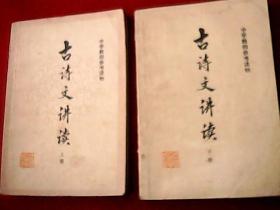 中学教师参考读物
古诗文讲读
上册
中学教师参考读物
古诗文讲读
下册